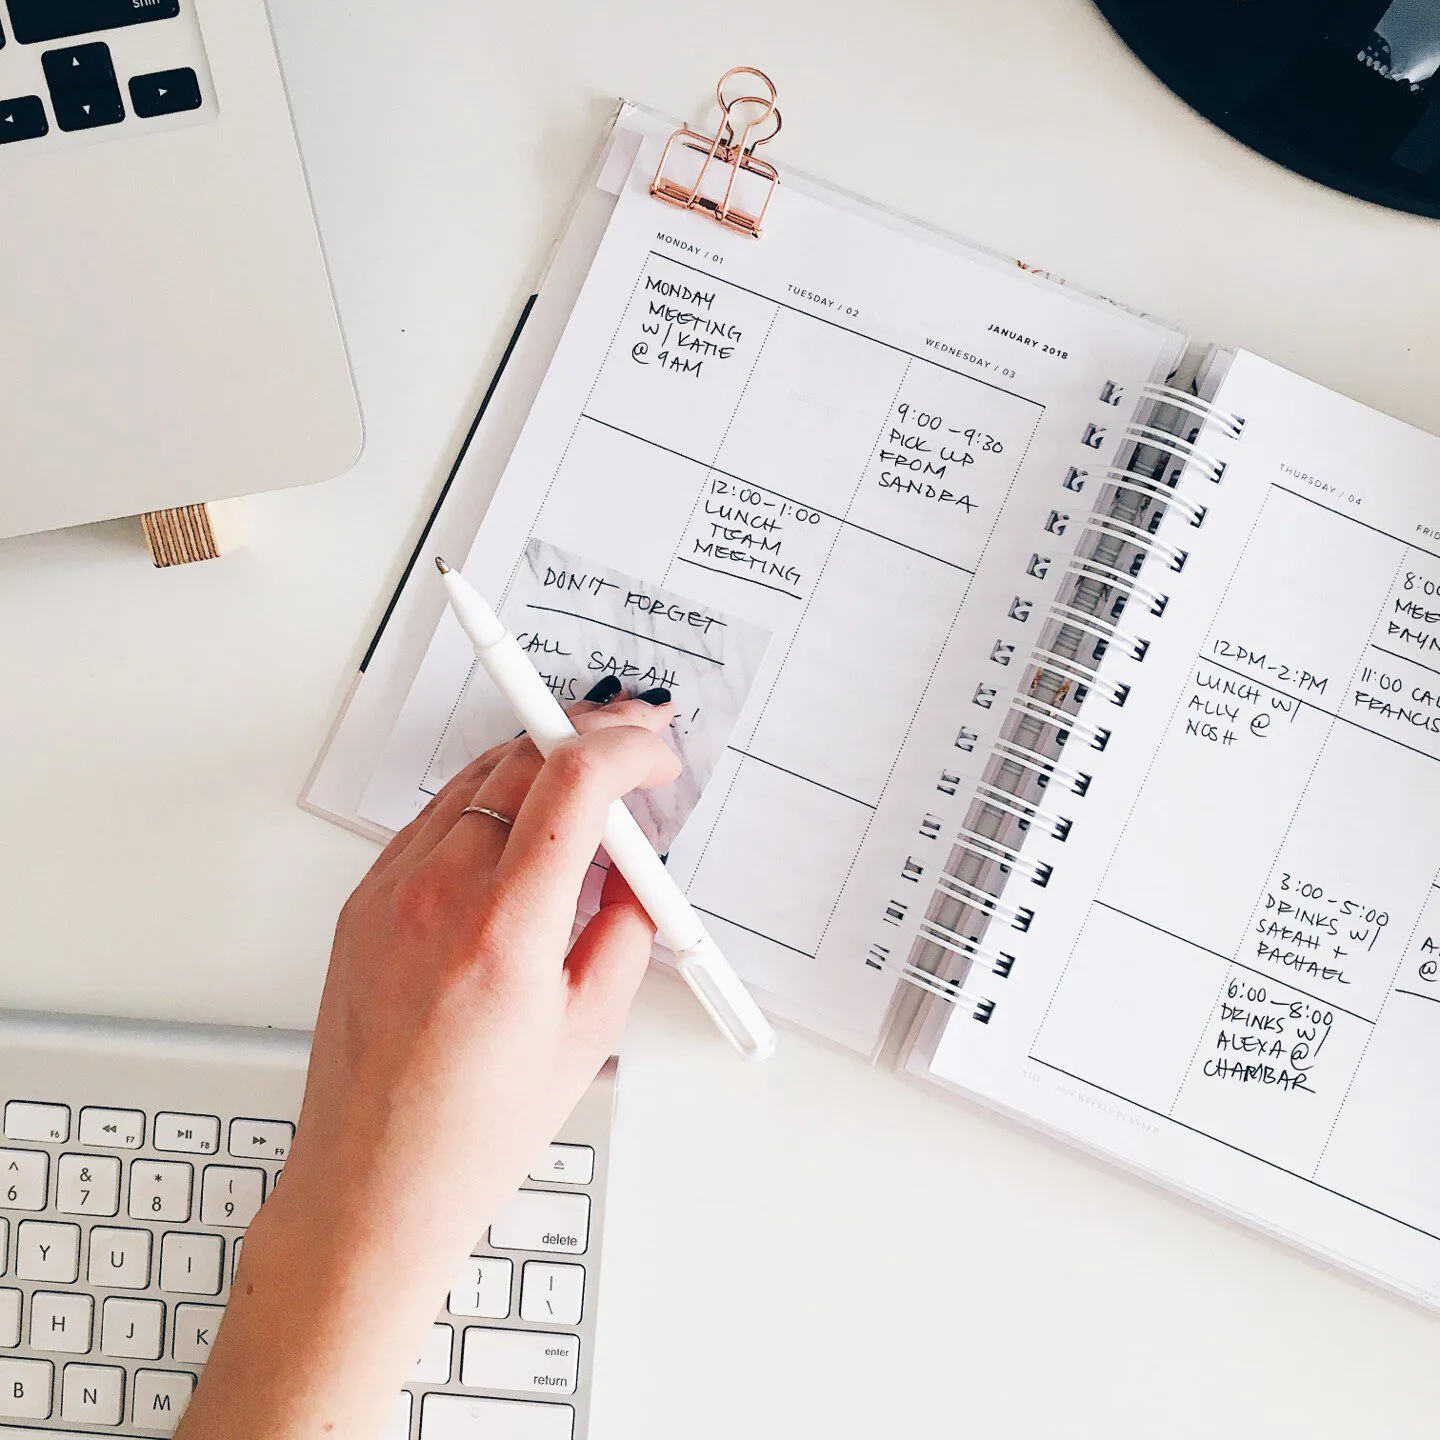 shift
JANUARY 2018
MONDAY / 01
MONDAY
MEETING
W/ KATIE
@ 9AM
TUESDAY / 02
12:00-1:00
LUNCH
TEAM
MEETING
WEDNESDAY / 03
9:00-9:30
PICK UP
FROM
SANDRA
DON'T FORGET
CALL SARAH
THIS
!
THURSDAY / 04
12PM-2:PM
LUNCH W/
ALLY @
NOSH
3:00-5:00
DRINKS W/
SARAH +
RACHAEL
6:00-8:00
DRINKS W/
ALEXA @
CHAMBAR
11:00
FRANCIS
@
WEEKLY PLANNER
F6 F7 F8 F9
^ & * (
6 7 8 9
delete
Y U I } ]
| \
H J K
enter
return
B N M